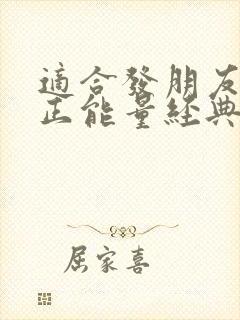 適合發朋友
正能量經典
屈家喜